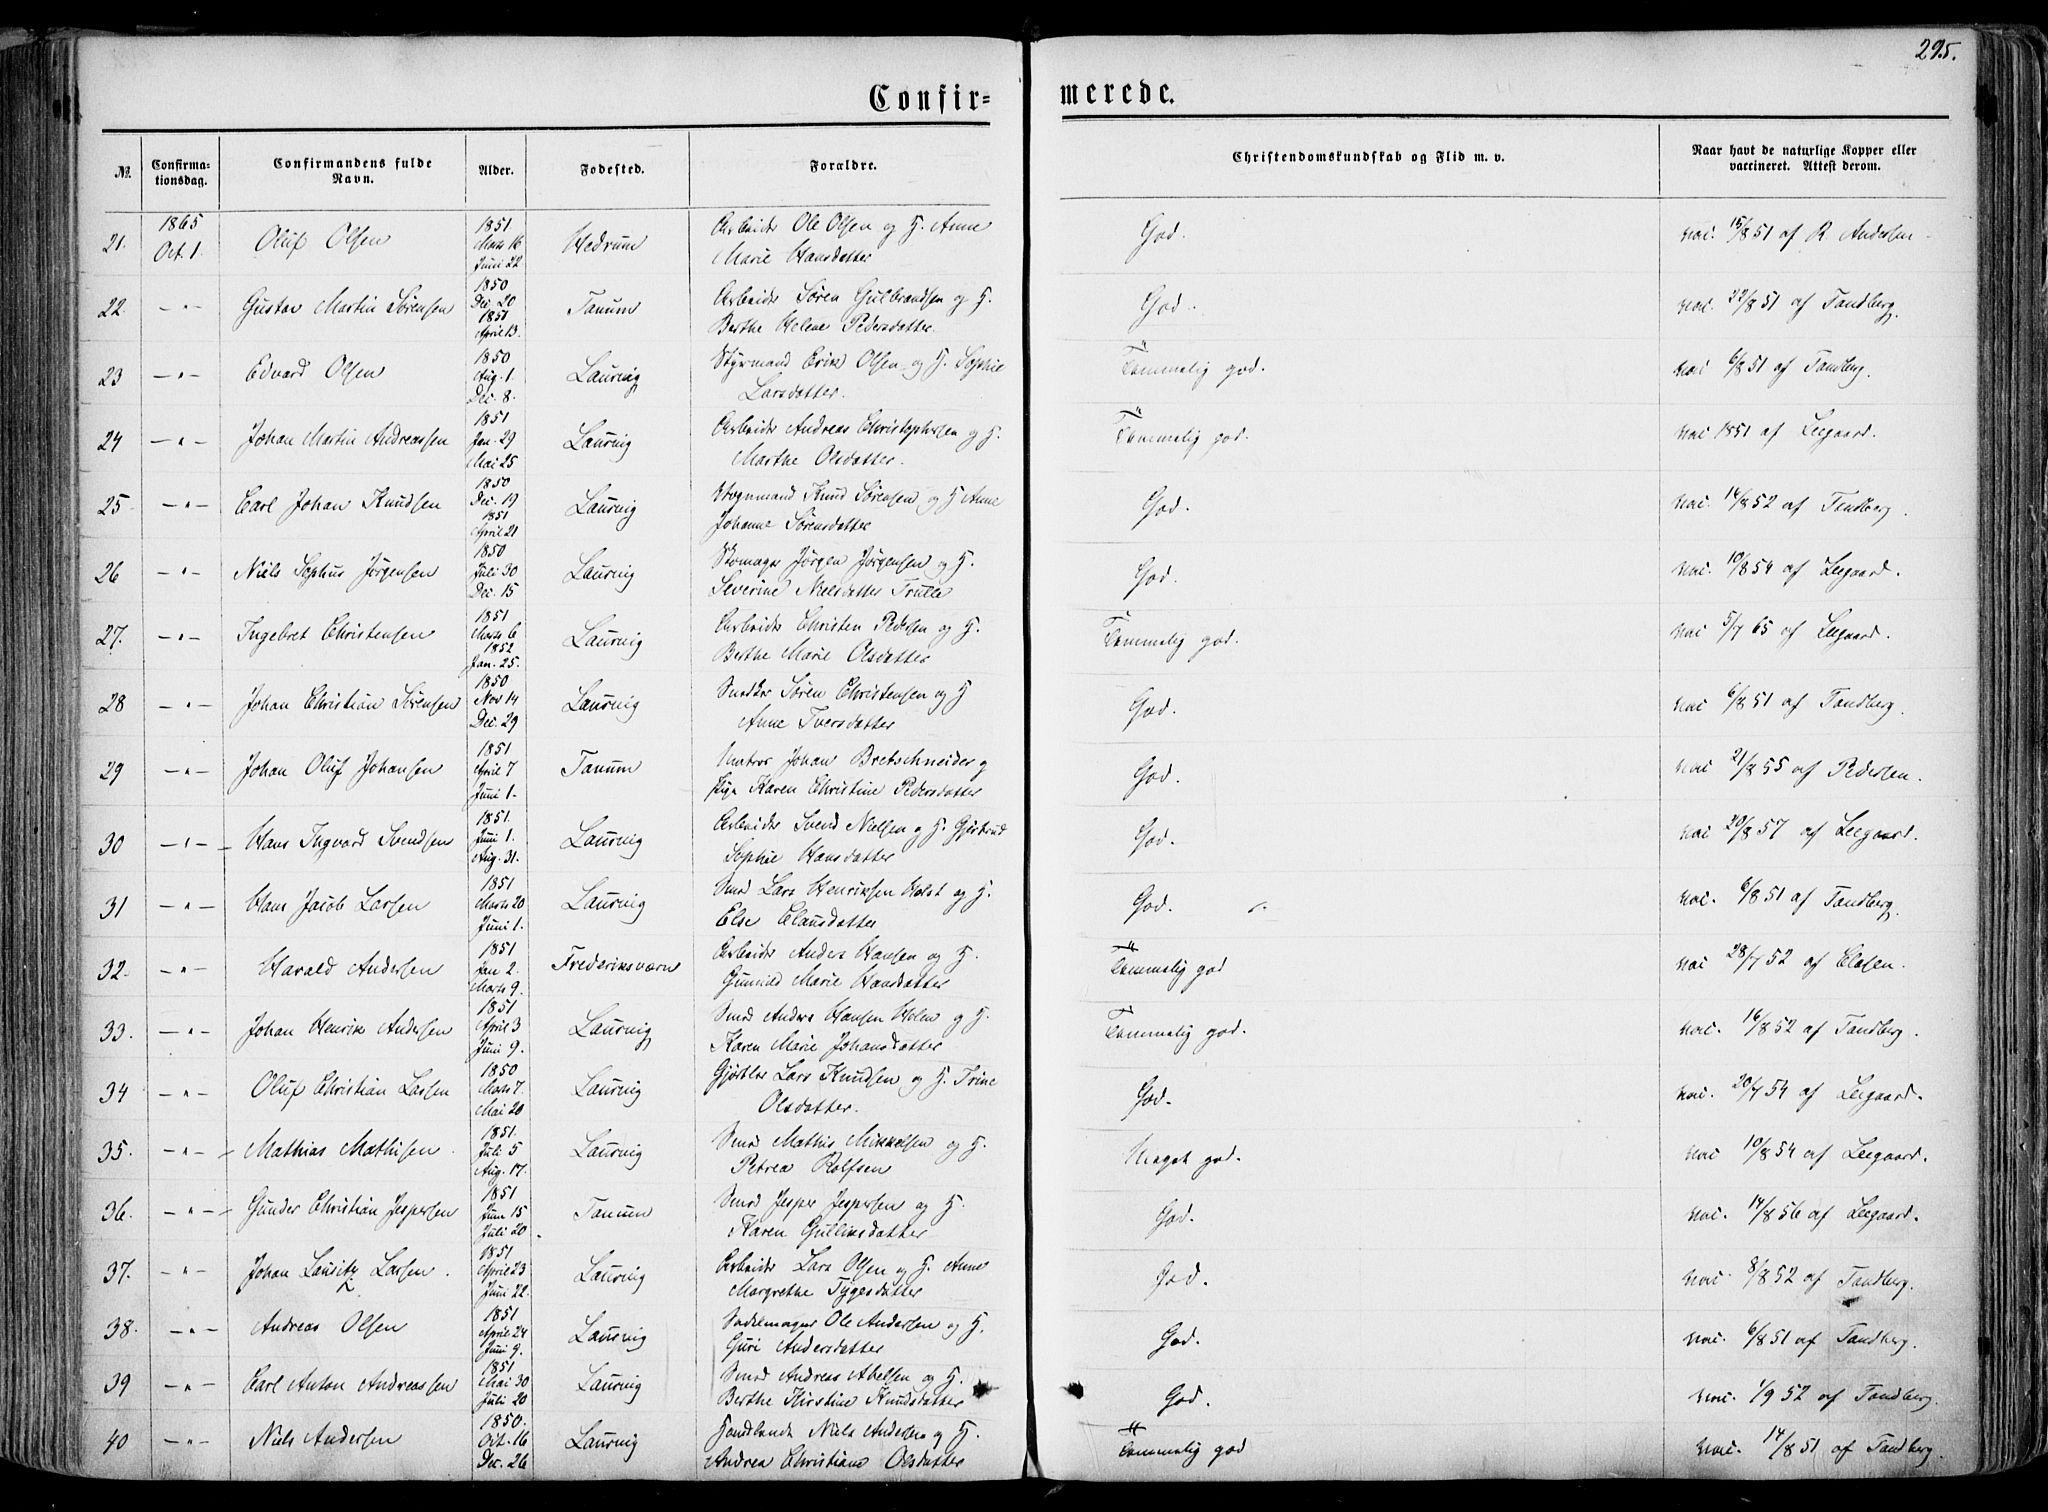 295.
Confir= merede.
№. Confirma- tionsdag. Confirmandens fulde Navn. Alder. Fødested. Forældre. Christendomskundskab og Flid m. v. Naar havt de naturlige Kopper eller vaccineret. Attest derom.
21. 1865 Oct. 1. Oluf Olsen 1851 Marts 16 Juni 22 Hedrum Arbeider Ole Olsen og H. Anne Marie Hansdatter God. vac. 15/8 51 af R. Andersen
22. -"- Gustav Martin Sørensen 1850 Dec. 20 1851 April 13. Tanum Arbeider Søren Gulbrandsen og H. Berthe Helene Pedersdatter. God. vac. 22/8 51 af Tandberg.
23 -"- Edvard Olsen 1850 Aug. 1. Dec. 8. Laurvig Styrmand Erik Olsen og H. Sophie Larsdatter. Temmelig god. vac 6/8 51 af Tandberg.
24 -"- Johan Martin Andreassen 1851 Jan. 29 Mai 25 Laurvig Arbeider Andreas Christophersen og H. Marthe Olsdatter. Temmelig god. vac 1851 af Leegaard.
25 -"- Carl Johan Knudsen 1850 Dec. 19 1851 April 21 Laurvig Vognmand Knud Sørensen og H Anne Johanne Sørensdatter God. vac. 14/8 52 af Tandberg.
26 -"- Niels Sophus Jørgensen 1850 Juli 30 Dec. 15 Laurvig Skomager Jørgen Jørgensen og H. Severine Nielsdatter Trulle God. vac. 10/8 54 af Leegaard.
27. -"- Ingebret Christensen 1851 Marts 6 1852 Jan. 25. Laurvig Arbeider Christen Pedersen og H. Berthe Marie Olsdatter Temmelig god. vac 5/7 65 af Leegaard.
28 -"- Johan Christian Sørensen 1850 Nov 14 Dec. 29 Laurvig Snedker Søren Christensen og H Anne Iversdatter God. vac 6/8 51 af Tandberg.
29 -"- Johan Oluf Johansen 1851 April 7 Juni 1. Tanum Matros Johan Bretschneider og Pige Karen Christine Pedersdatter God. vac 21/8 55 af Pedersen.
30 -"- Hans Ingvard Svendsen 1851. Juni 1. Aug. 31. Laurvig Arbeider Svend Nielsen og H. Gjertrud Sophie Hansdatter God. vac 20/8 57 af Leegaard.
31 -"- Hans Jacob Larsen 1851 Marts 20 Juni 1. Laurvig Smed Lars Henriksen Holst og H. Else Clausdatter God. vac. 6/8 51 af Tandberg.
32. -"- Harald Andersen 1851 Jan 2. Marts 9. Frederiksværn Arbeider Anders Hansen og H. Gunild Marie Hansdatter Temmelig god vac 28/7 52 af Clasen.
33. -"- Johan Henrik Andersen 1851 April 3 Juni 9. Laurvig Smed Anders Hansen Holm og H. Karen Marie Johansdatter Temmelig god. vac. 16/8 52 af Tandberg.
34 -"- Oluf Christian Larsen 1850 Marts 7. Mai 20 Laurvig Gjørtler Lars Knudsen og H. Trine Olsdatter. God. vac. 20/7 54 af Leegaard.
35. -"- Mathias Mathisen. 1851. Juli 5 Aug. 17. Laurvig Smed Mathis Mikkelsen og H. Petrea Rolfsen Meget god. vac 10/8 54 af Leegaard.
36. -"- Gunder Christian Jespersen 1851 Juni 15 Juli 20 Tanum Smed Jesper Jespersen og H. Karen Gulliksdatter God. vac. 14/8 56 af Leegaard.
37. -"- Johan Lauritz Larsen. 1851 April 23 Juni 22. Laurvig Arbeider Lars Olsen og H. Anne Margrethe Tygesdatter God. vac. 8/8 52 af Tandberg.
38. -"- Andreas Olsen 1851 April 24 Juni 9. Laurvig Sadelmager Ole Andersen og H. Guri Andersdatter God. vac. 6/8 51 af Tandberg.
39 -"- Carl Anton Andreassen 1851 Mai 30 Juli 20 Laurvig Smed Andreas Abelsen og H. Berthe Kirstine Knudsdatter God. vac. 1/9 52 af Tandberg.
40 -"- Niels Andersen 1850. Oct. 16 Dec. 26 Laurvig Niels Andersen og H. Andrea Christiane Olsdatter Temmelig god vac. 14/8 51 af Tandberg.